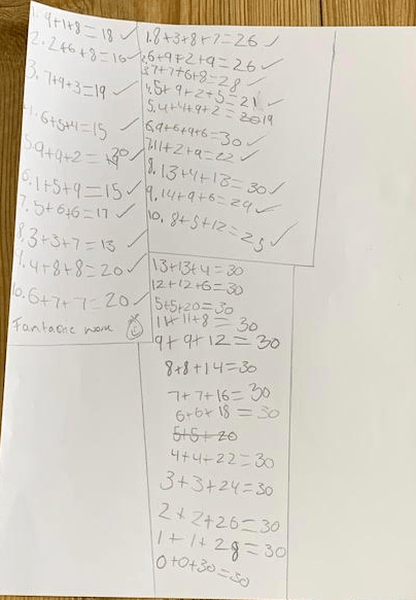 1. 9+1+8=18 ✓
2. 2+6+8=16 ✓
3. 7+9+3=19 ✓
4. 6+5+4=15 ✓
5. 9+9+2=20 ✓
6. 1+5+9=15 ✓
7. 5+6+6=17 ✓
8. 3+3+7=13 ✓
9. 4+8+8=20 ✓
10. 6+7+7=20 ✓
Fantastic work
1. 8+3+8+7=26 ✓
2. 6+9+2+9=26 ✓
3. 7+7+6+8=28 ✓
4. 5+9+2+5=21 ✓
5. 4+4+9+2=19
6. 9+6+9+6=30 ✓
7. 11+2+9=22 ✓
8. 13+4+13=30 ✓
9. 14+9+6=29 ✓
10. 8+5+12=25 ✓
13+13+4=30
12+12+6=30
5+5+20=30
11+11+8=30
9+9+12=30
8+8+14=30
7+7+16=30
6+6+18=30
5+5+20
4+4+22=30
3+3+24=30
2+2+26=30
1+1+28=30
0+0+30=30